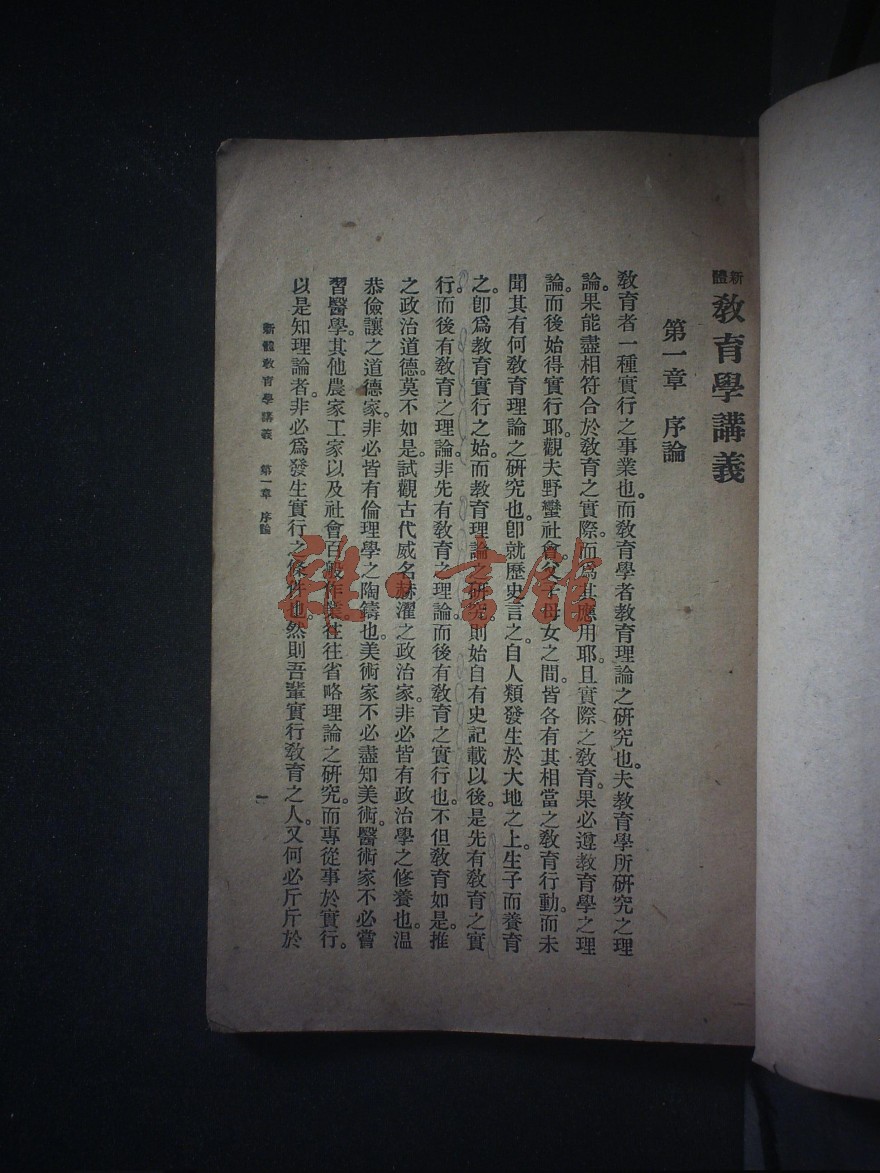 新體 教育學講義
第一章 序論
教育者一種實行之事業也。而教育學者教育理論之研究也。夫教育學所研究之理
論。果能盡相符合於教育之實際。而爲其應用耶。且實際之教育。果必遵教育學之理
論。而後始得實行耶。觀夫野蠻社會。父子母女之間。皆各有其相當之教育行動。而未
聞其有何教育理論之研究也。卽就歷史言之。自人類發生於大地之上。生子而養育
之。卽爲教育實行之始。而教育理論之研究。則始自有史記載以後。是先有教育之實
行。而後有教育之理論。非先有教育之理論而後有教育之實行也。不但教育如是。推
之政治道德。莫不如是。試觀古代威名赫濯之政治家。非必皆有政治學之修養也。溫
恭儉讓之道德家。非必皆有倫理學之陶鑄也。美術家不必盡知美術。醫術家不必嘗
習醫學。其他農家工家以及社會百般作業。往往省略理論之研究。而專從事於實行。
以是知理論者。非必爲發生實行之條件也。然則吾輩實行教育之人。又何必斤斤於
新體教育學講義 第一章 序論
一
雜·書館